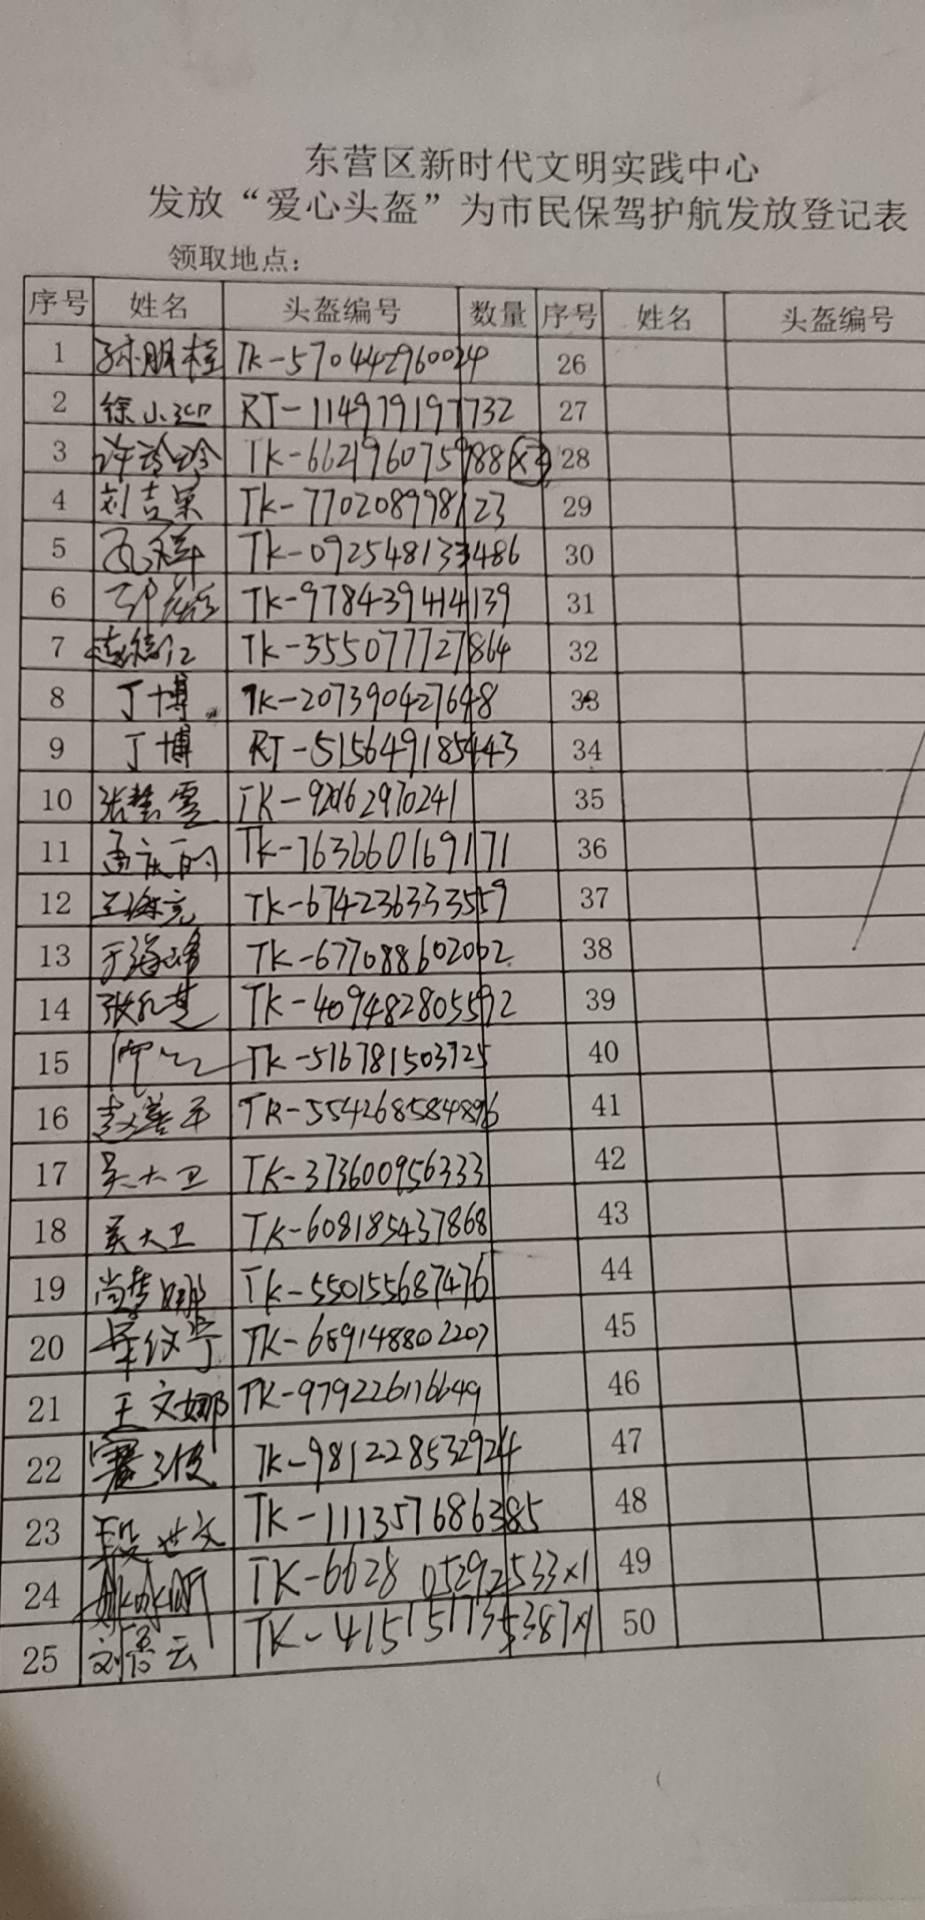 东营区新时代文明实践中心
发放“爱心头盔”为市民保驾护航发放登记表
领取地点:
序号 姓名 头盔编号 数量 序号 姓名 头盔编号
1 孙朋桂 TK-570442960024 26
2 徐小迎 RT-114979197732 27
3 许玲玲 TK-662196075988 28
4 刘吉荣 TK-770208998123 29
5 TK-092548133486 30
6 TK-978439414139 31
7 TK-355077727864 32
8 丁博 TK-207390427648 33
9 丁博 RT-515649185443 34
10 张慧雪 35
11 TK-763660169171 36
12 TK-674236333559 37
13 TK-677088602002 38
14 TK-409482805592 39
15 TK-516781503725 40
16 赵善平 TK-554268584896 41
17 吴大卫 TK-373600956333 42
18 吴大卫 TK-608185437868 43
19 尚梦娜 TK-550155687476 44
20 TK-689148802207 45
21 王文娜 TK-979226116649 46
22 TK-981228532924 47
23 段世文 TK-111357686385 48
24 TK-6628 05292533×1 49
25 TK-415151735387×1 50